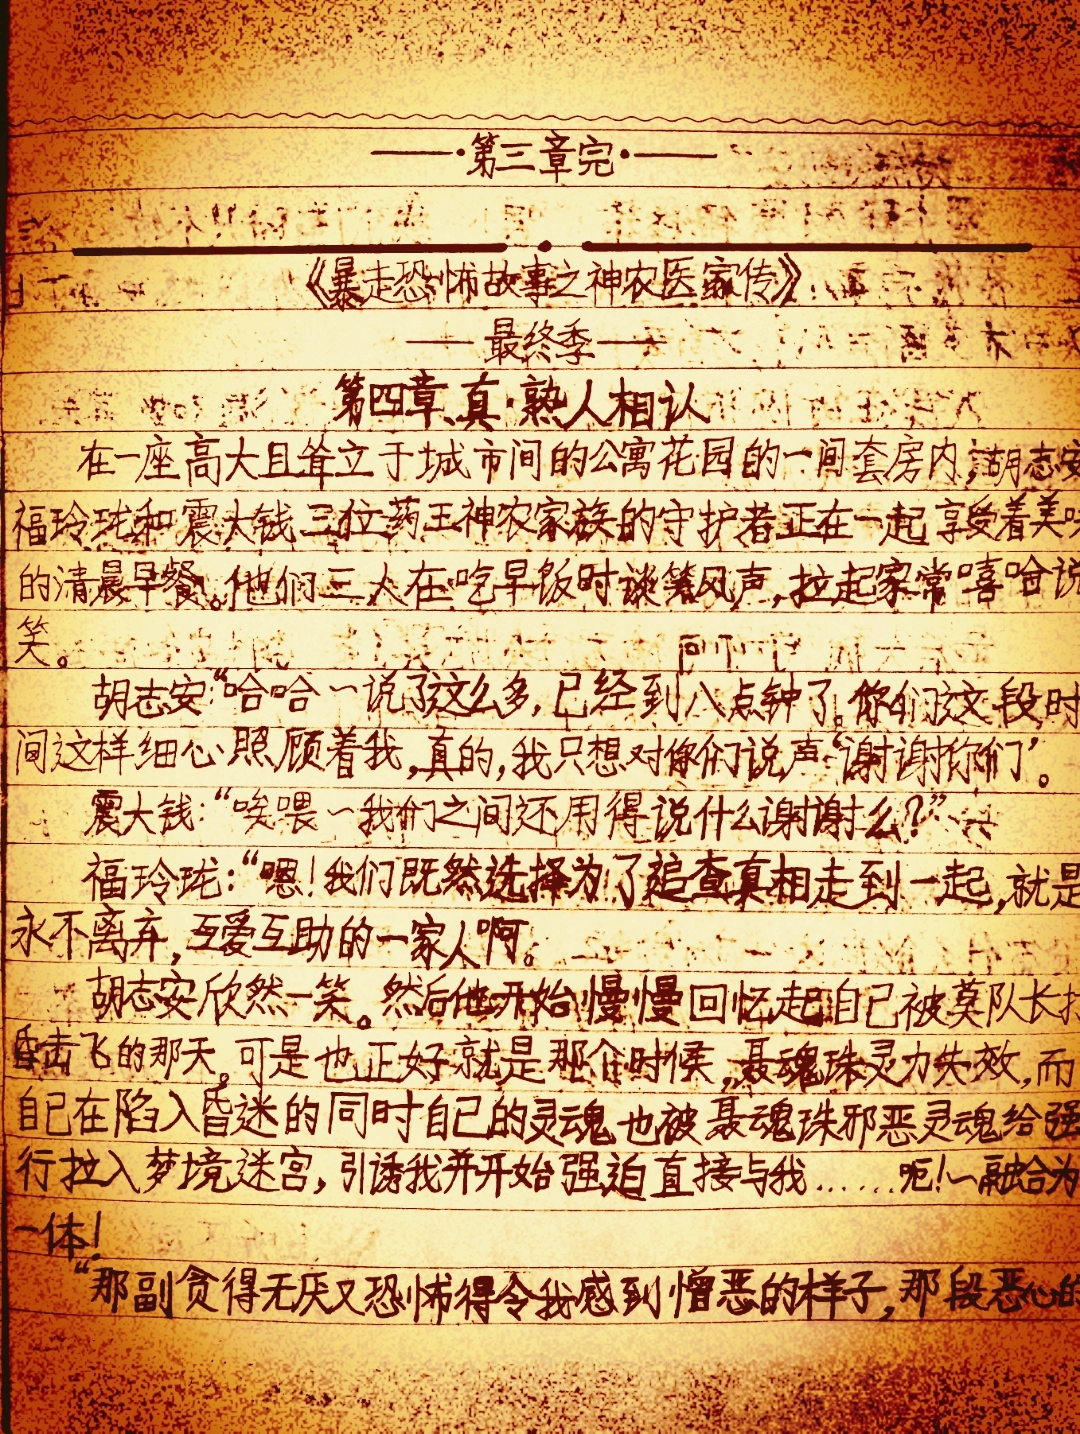 ——·第三章完·——
《暴走恐怖故事之神农医家传》
——最终季——
第四章、真·熟人相认
在一座高大且耸立于城市间的公寓花园的一间套房内,胡志安
福玲珑和震大钱三位药王神农家族的守护者正在一起享受着美味
的清晨早餐。他们三人在吃早饭时谈笑风声,拉起家常嘻哈说
笑。
胡志安:“哈哈~说了这么多,已经到八点钟了。你们这段时
间这样细心照顾着我,真的,我只想对你们说声‘谢谢你们’。
震大钱:“唉喂~我们之间还用得说什么谢谢么?”
福玲珑:“嗯!我们既然选择为了追查真相走到一起,就是
永不离弃,互爱互助的一家人啊。
胡志安欣然一笑。然后他开始慢慢回忆起自己被莫队长打
昏击飞的那天。可是也正好就是那个时候,聂魂珠灵力失效,而
自己在陷入昏迷的同时自己的灵魂也被聂魂珠邪恶灵魂给强
行拉入梦境迷宫,引诱我并开始强迫直接与我……呃!~融合为
一体!
“那副贪得无厌又恐怖得令我感到憎恶的样子,那段恶心的